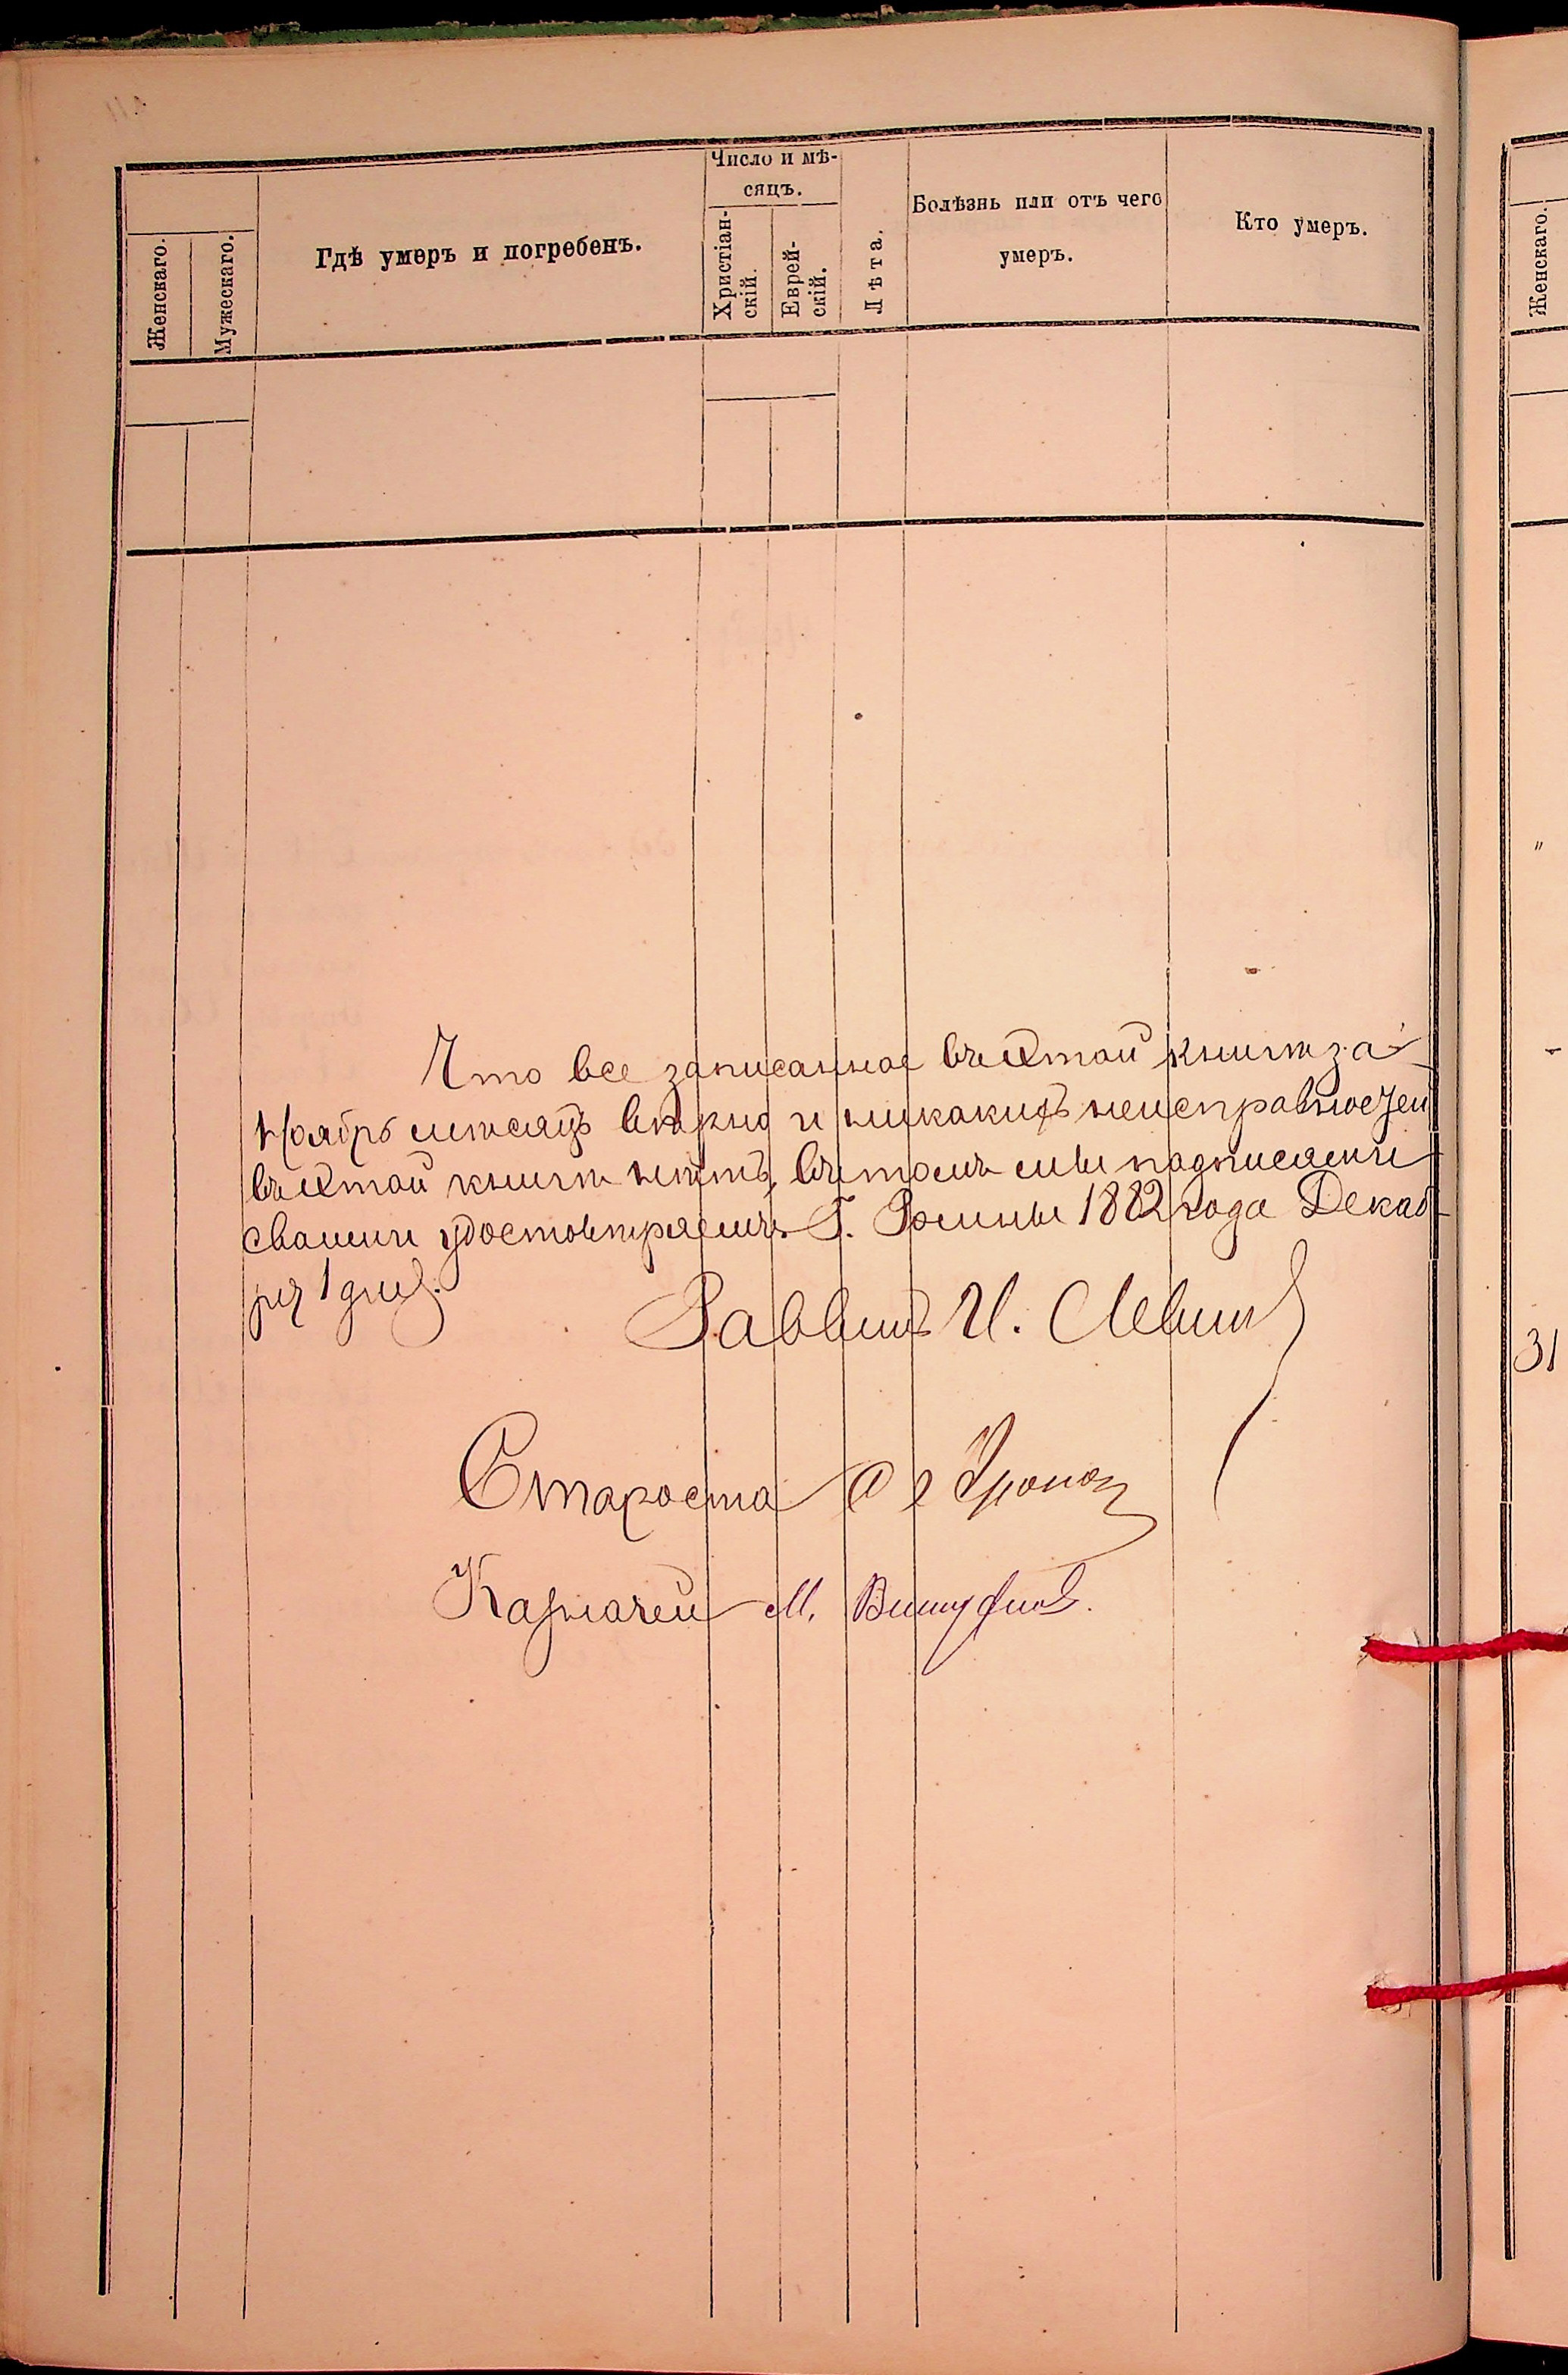 Число и мѣ-
сяцъ.
Женскаго.
Мужескаго.
Гдѣ умеръ и погребенъ.
Христіан-
скій.
Еврей-
скій.
Лѣта.
Болѣзнь или отъ чего
умеръ.
Кто умеръ.
Что все записанное въ етой книгѣ за
Ноябрь мѣсяцъ вѣрно и никакихъ неисправностей
въ етой книги нѣтъ, въ томъ мы подписями
своими удостовѣряемъ Г. Ромны 1882 года Декаб-
ря 1 дня.
Раввинъ И. Левин
Староста
Казначей М.
Женскаго.
"
31